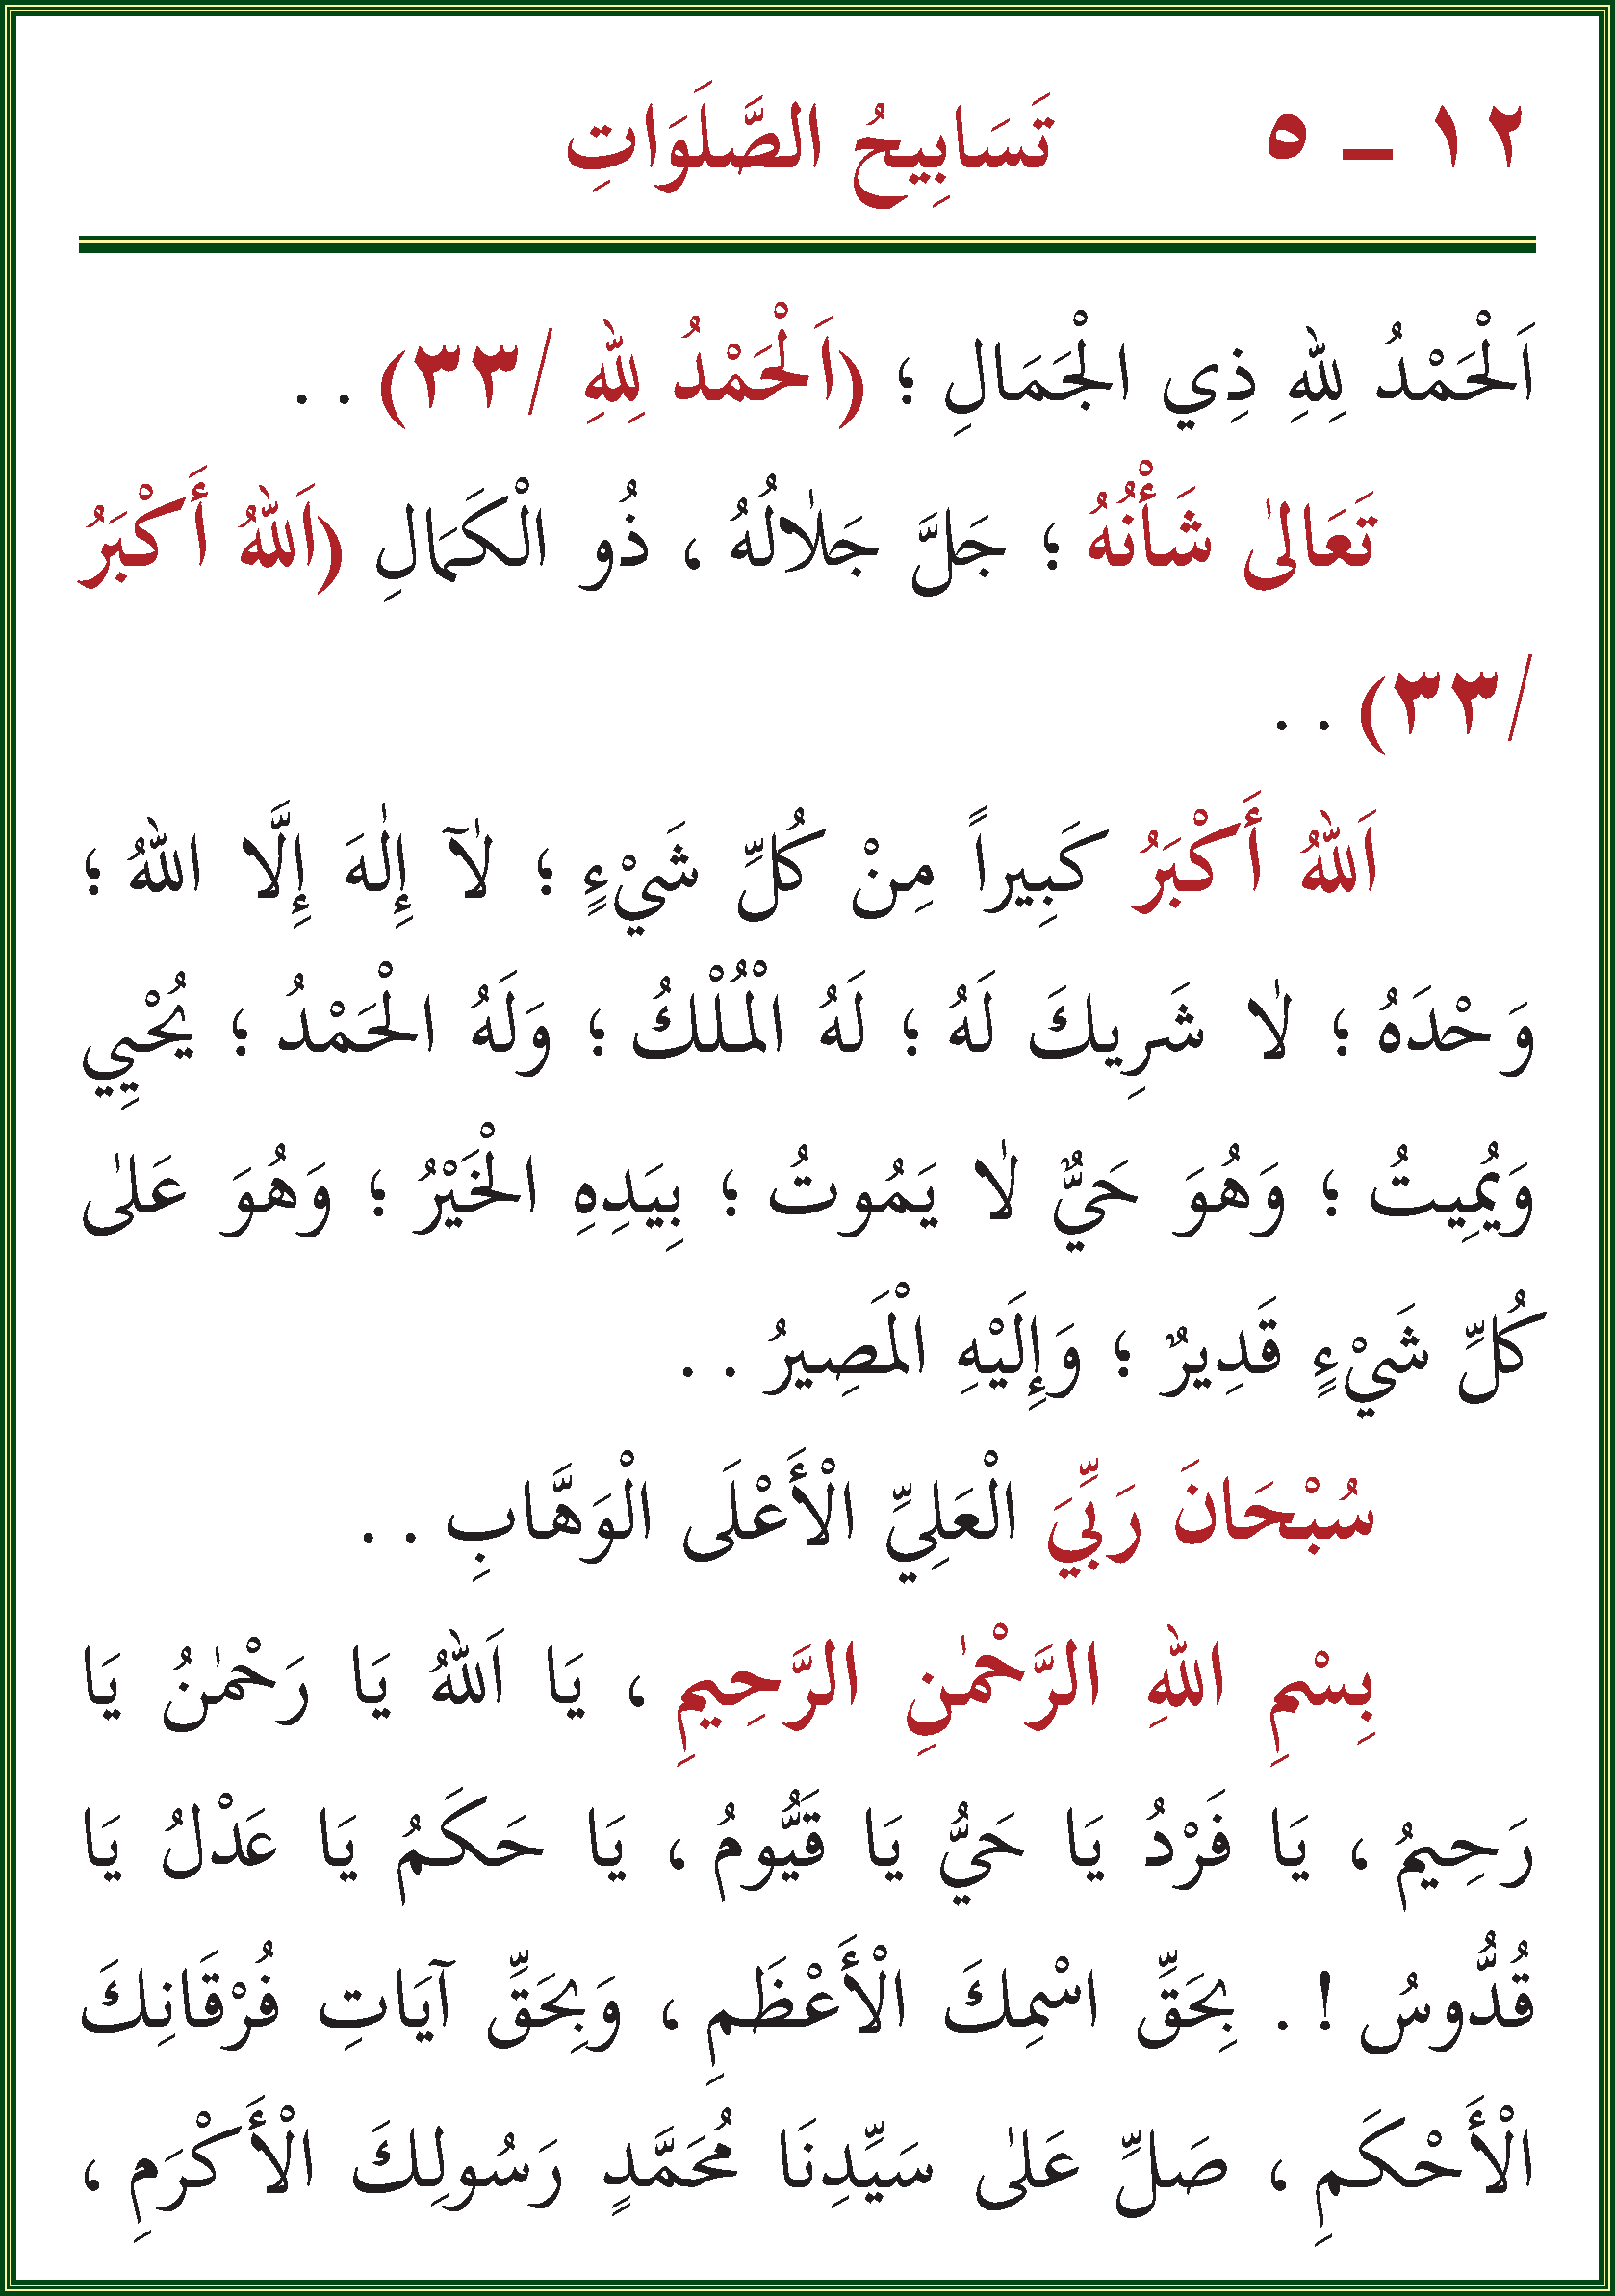 ١٢ – ٥ تَسَابِيحُ الصَّلَوَاتِ
اَلْحَمْدُ لِلهِ ذِي الْجَمَالِ ؛ (اَلْحَمْدُ لِلهِ /٣٣) . .
تَعَالىٰ شَأْنُهُ ؛ جَلَّ جَلٰالُهُ ، ذُو الْكَمَالِ (اَللهُ أَكْبَرُ
/٣٣) . .
اَللهُ أَكْبَرُ كَبِيراً مِنْ كُلِّ شَيْءٍ ؛ لٰآ إِلٰهَ إِلَّا اللهُ ؛
وَحْدَهُ ؛ لٰا شَرِيكَ لَهُ ؛ لَهُ الْمُلْكُ ؛ وَلَهُ الْحَمْدُ ؛ يُحْيِي
وَيُمِيتُ ؛ وَهُوَ حَيٌّ لٰا يَمُوتُ ؛ بِيَدِهِ الْخَيْرُ ؛ وَهُوَ عَلىٰ
كُلِّ شَيْءٍ قَدِيرٌ ؛ وَإِلَيْهِ الْمَصِيرُ . .
سُبْحَانَ رَبِّيَ الْعَلِيِّ الْأَعْلَى الْوَهَّابِ . .
بِسْمِ اللهِ الرَّحْمٰنِ الرَّحِيمِ ، يَا اَللهُ يَا رَحْمٰنُ يَا
رَحِيمُ ، يَا فَرْدُ يَا حَيُّ يَا قَيُّومُ ، يَا حَكَمُ يَا عَدْلُ يَا
قُدُّوسُ ! . بِحَقِّ اسْمِكَ الْأَعْظَمِ ، وَبِحَقِّ آيَاتِ فُرْقَانِكَ
الْأَحْكَمِ ، صَلِّ عَلىٰ سَيِّدِنَا مُحَمَّدٍ رَسُولِكَ الْأَكْرَمِ ،